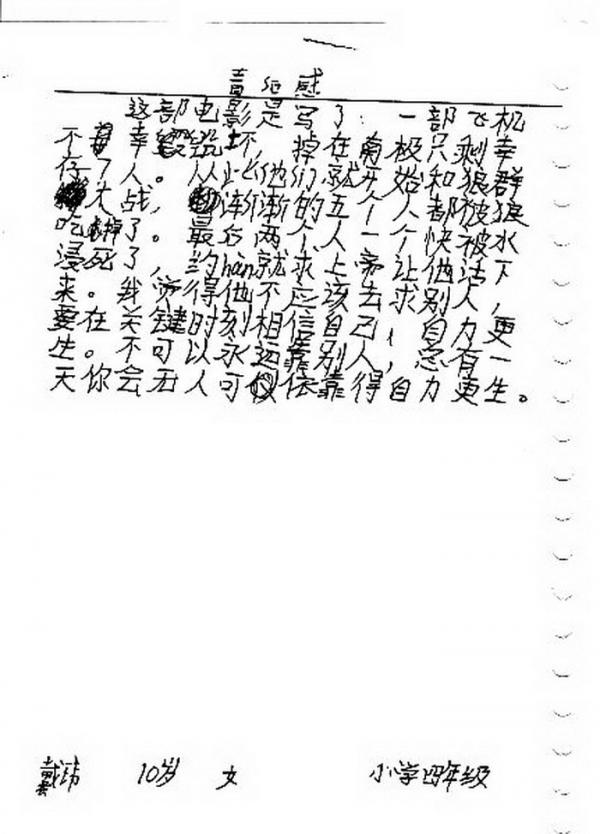 感
这部电影是写了:一部飞机
不幸坏掉在南极只剩幸
存了人。从此他们就开始和狼群
大战,渐渐的五个人都被狼
吃掉了。最后两个人快被水
浸死了,约hàn就求上帝让他活下
来。我觉得他不应该去求别人,
要在关键时刻相信自己,自力更
生。不可以永远靠别人,总有一
天你会无人可依靠得自力更生。
戴 10岁 女 小学四年级